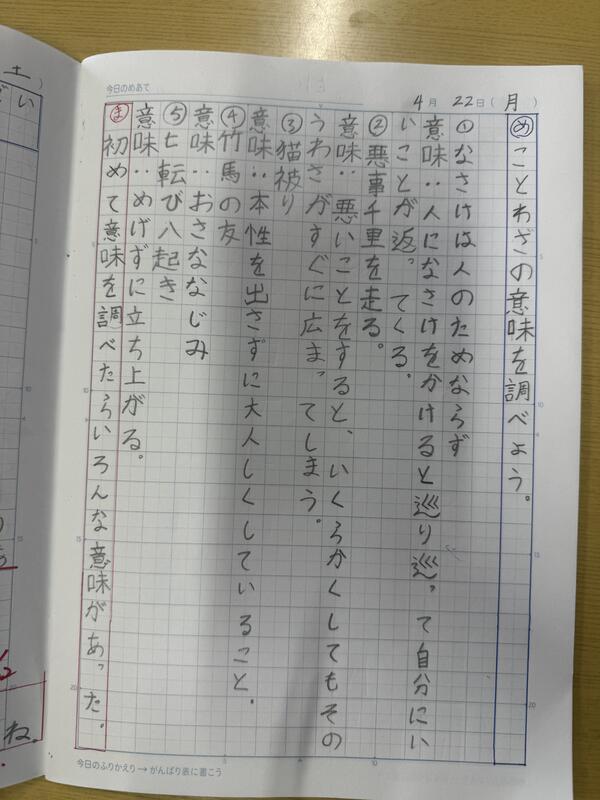 今日のめあて
4月22日(月)
めことわざの意味を調べよう。
①なさけは人のためならず
意味：人になさけをかけると巡り巡って自分にい
いことが返ってくる。
②悪事千里を走る。
意味：悪いことをすると、いくらかくしてもその
うわさがすぐに広まってしまう。
③猫被り
意味：本性を出さずに大人しくしていること。
④竹馬の友
意味：おさななじみ
⑤七転び八起き
意味：めげずに立ち上がる。
ま初めて意味を調べたらいろんな意味があった。
今日のふりかえり→がんばり表に書こう
土
い
ね。